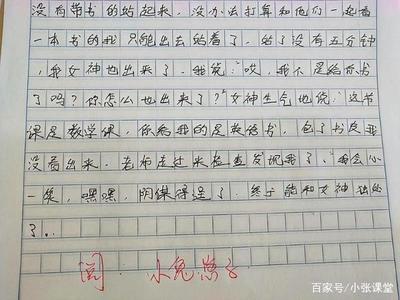 没有带书的站起来，没办法打算和他们一起看
一本书的我只能出去站着了，站了没有五分钟
，我女神也出来了，我说："哎，我不是给你书
了吗？你怎么也出来了？"女神生气地说："这节
课是数学课，你给我的是英语书，包了书皮我
没看出来，老师走过来检查发现我了。"我会心
一笑，嘿嘿，阴谋得逞了，终于能和女神站
了..
阅：小兔崽子
百家号/小张课堂